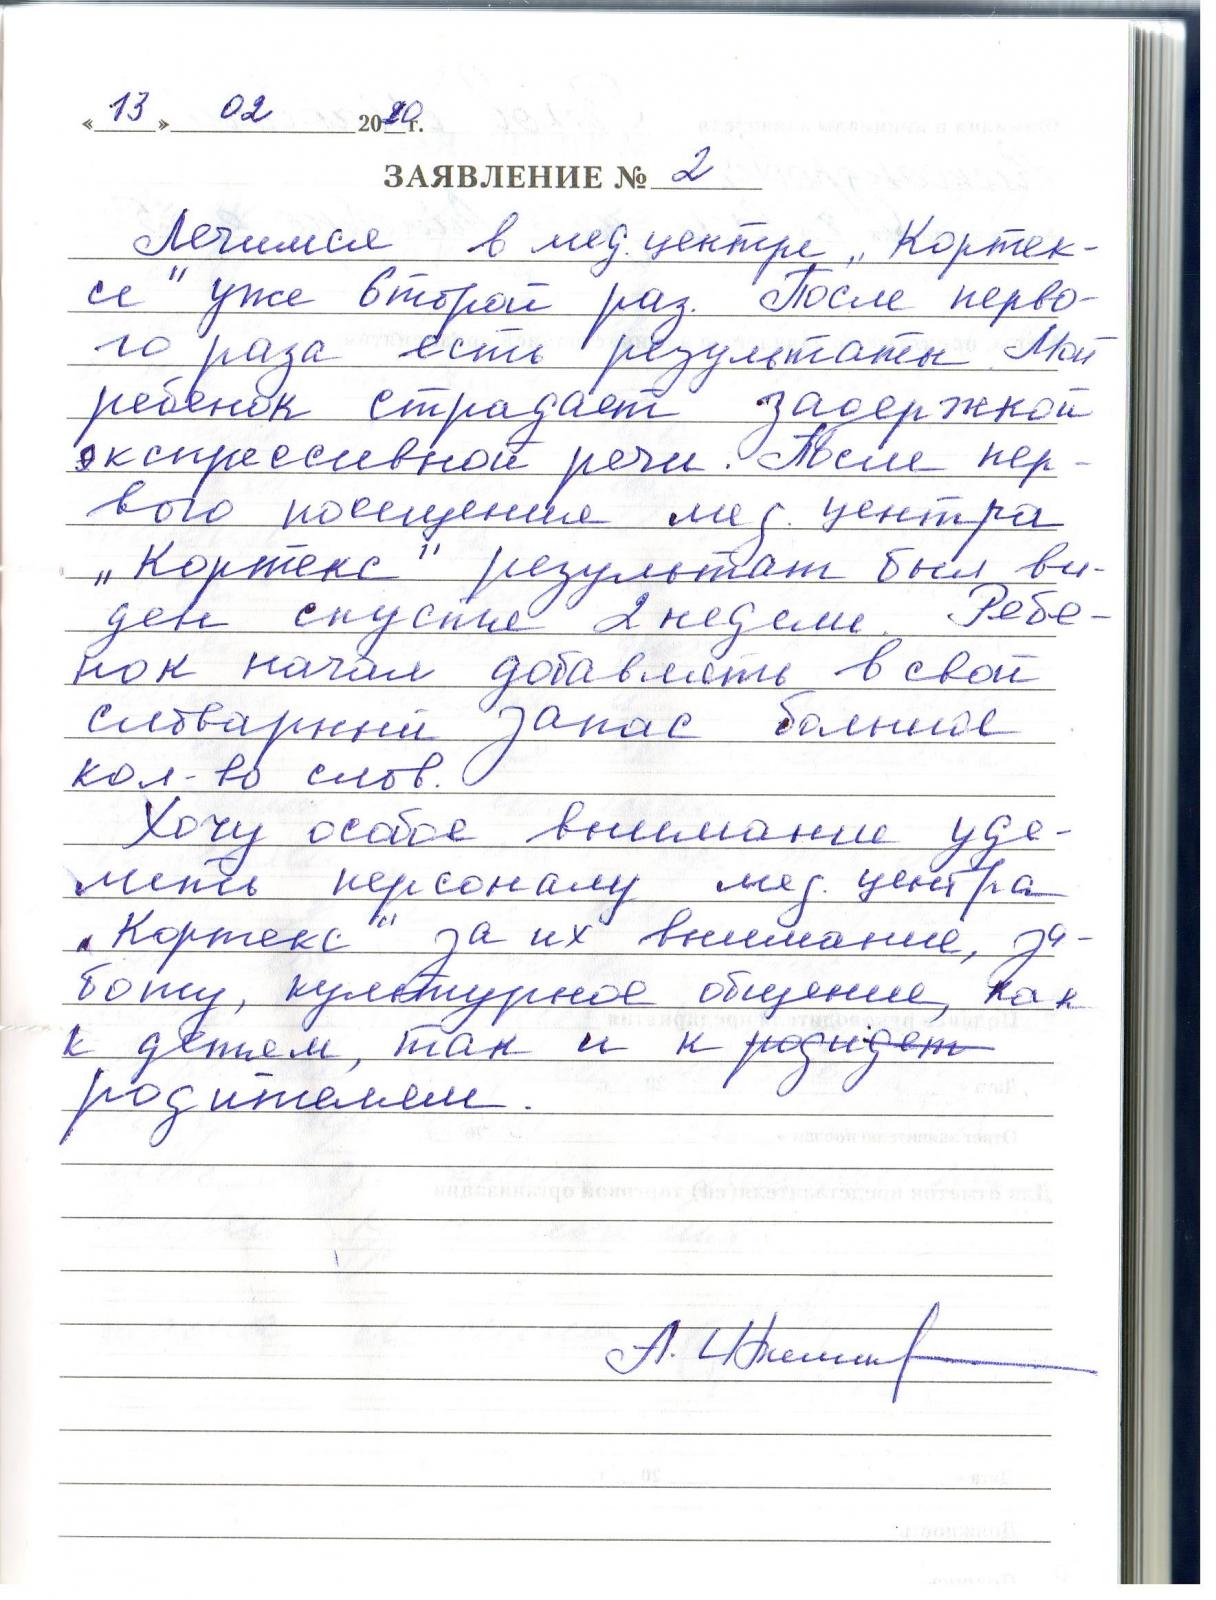 « 13 » 02 2020 г.
ЗАЯВЛЕНИЕ № 2
Лечимся в мед. центре „Кортек-
се" уже второй раз. После перво-
го раза есть результаты. Мой
ребенок страдает задержкой
экспрессивной речи. После пер-
вого посещения мед. центра
„Кортекс" результат был ви-
ден спустя 2 недели. Ребе-
нок начал добавлять в свой
словарный запас большое
кол-во слов.
Хочу особое внимание уде-
лить персоналу мед. центра
„Кортекс" за их внимание, за-
боту, культурное общение, как
к детям, так и к
родителям.
А.